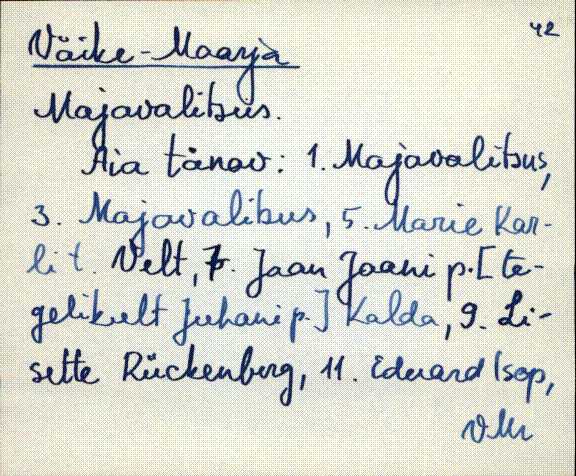 42
Väike-Maarja
Majavalitsus.
Aia tänav: 1. Majavalitsus,
3. Majavalitsus, 5. Marie Kar-
li t. Velt, 7. Jaan Jaani p. [te-
gelikult Juhani p.] Kalda, 9. Li-
sette Rückenberg, 11. Eduard Isop,